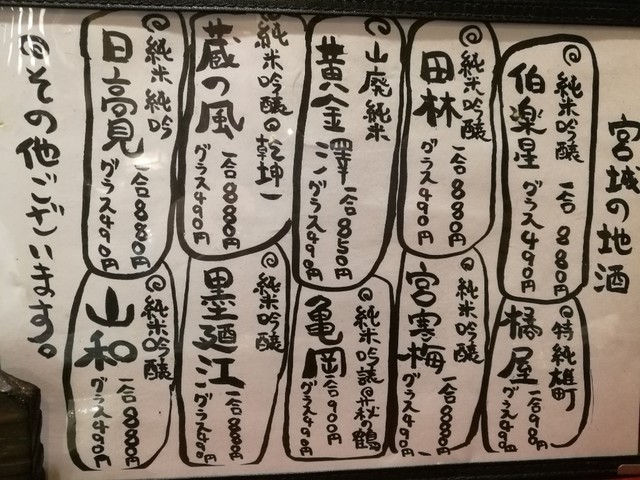 宮城の地酒
純米吟醸
伯楽星
一合 880円
グラス490円
特純雄町
橘屋
一合 980円
グラス490円
純米吟醸
田林
一合880円
グラス490円
純米吟醸
宮寒梅
一合880円
グラス490円
山廃純米
黄金澤
一合850円
グラス490円
純米吟醸
秋の鶴
亀岡
一合900円
グラス490円
純米吟醸
乾坤一
蔵の風
一合880円
グラス490円
純米吟醸
墨廼江
一合880円
グラス490円
純米 純吟
日高見
一合880円
グラス490円
純米吟醸
山和
一合880円
グラス490円
その他ございます。